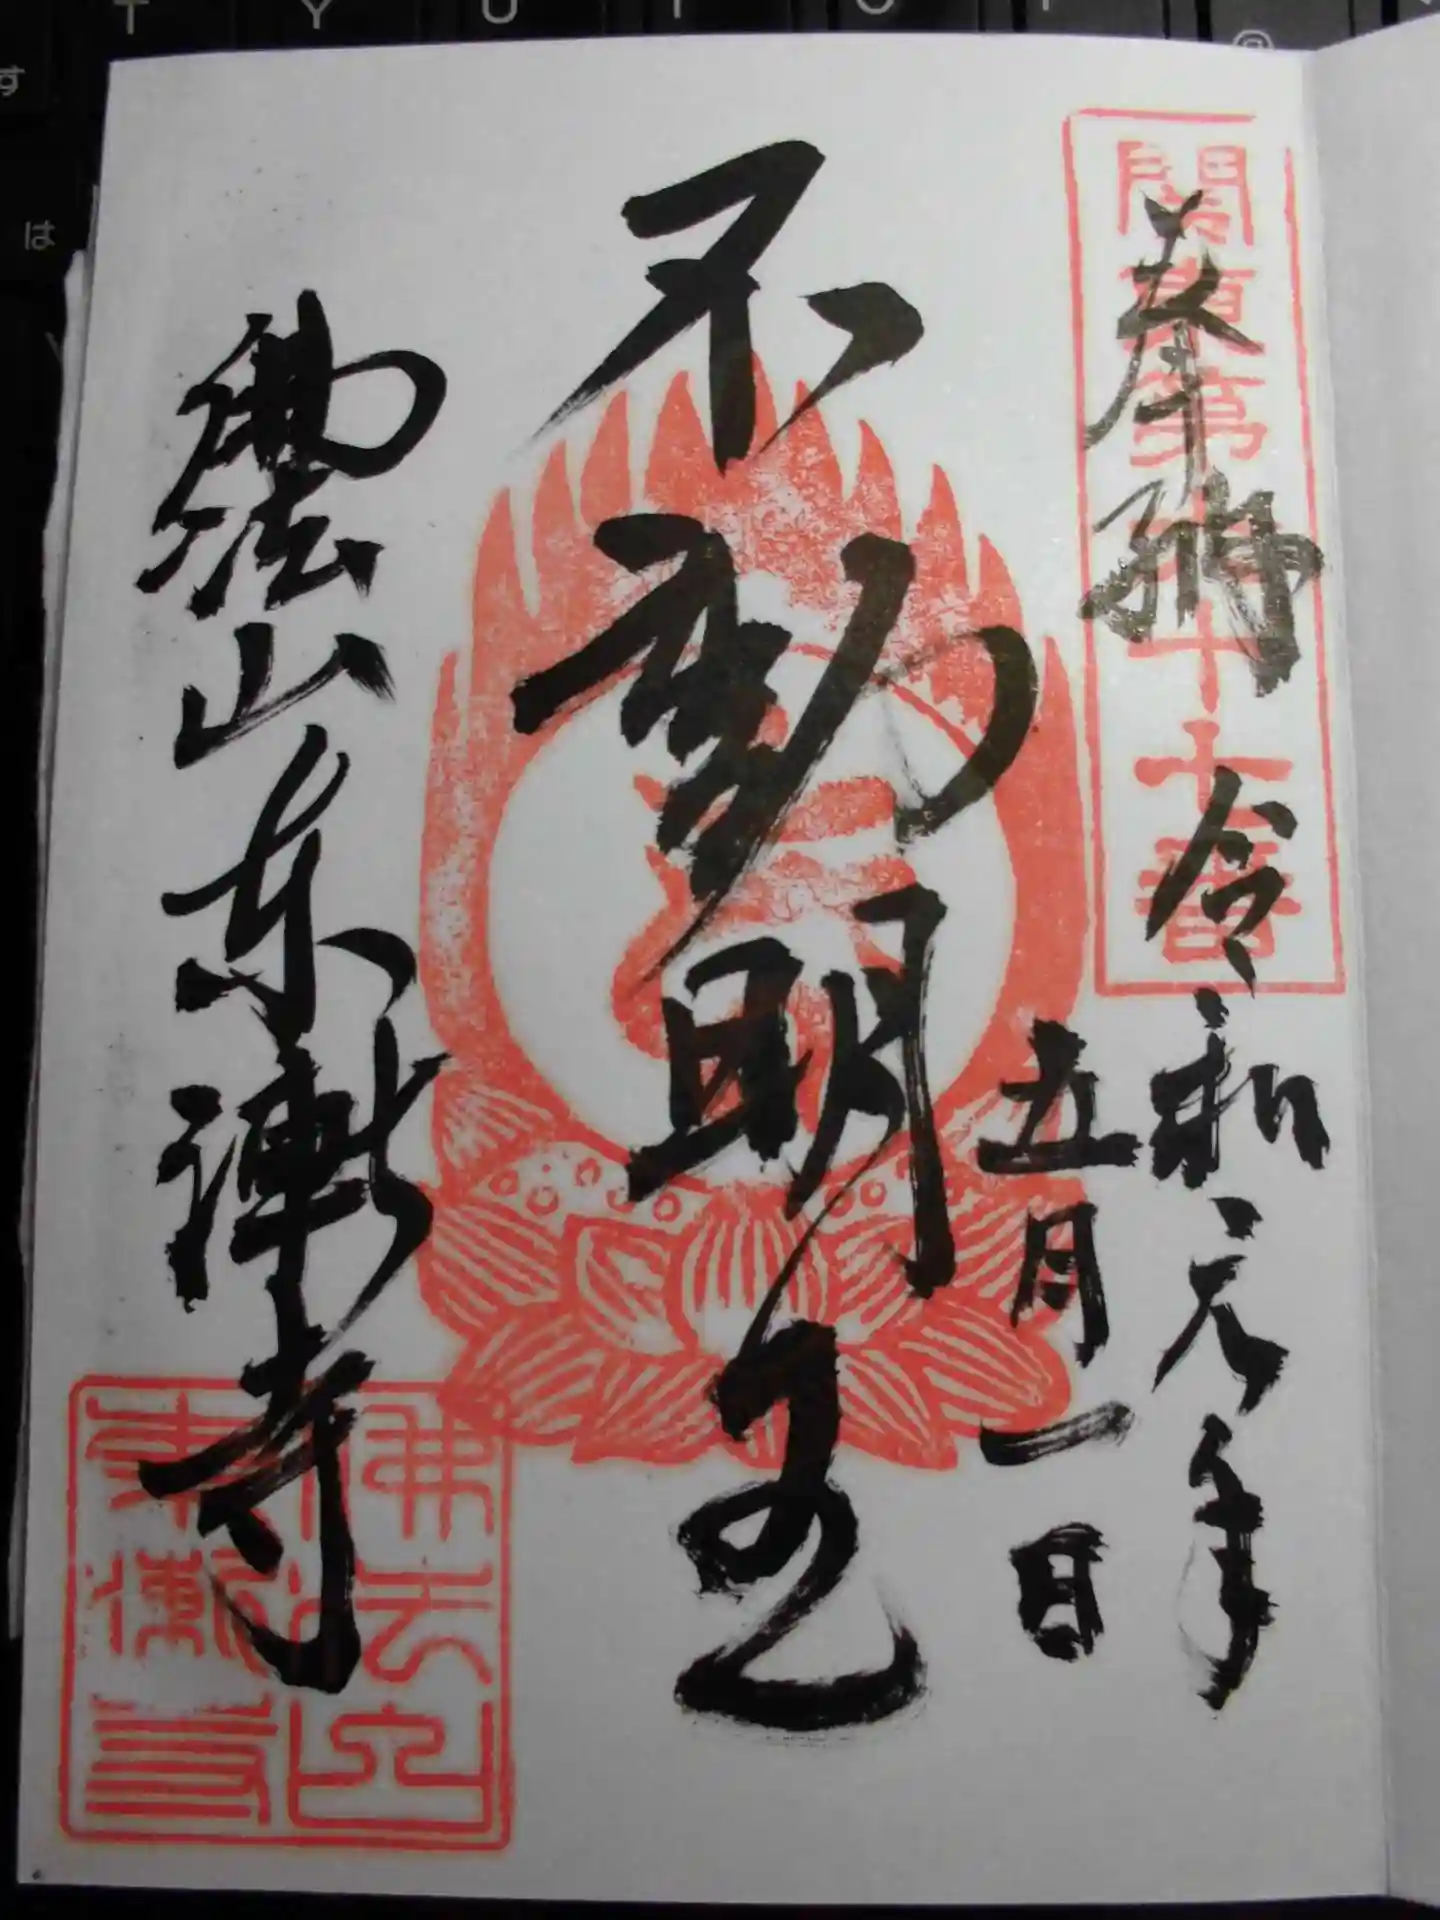 T Y U I O P @
す
は
奉拝
關東第 十七番
令和元年
五月一日
不動明王
佛法山東漸寺
佛法山
東漸寺